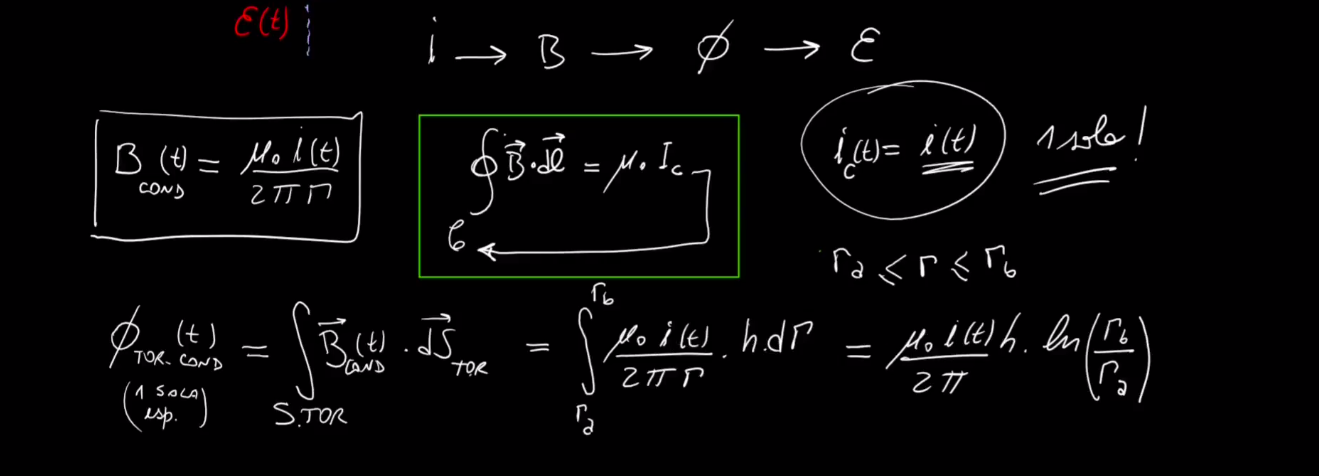 ε(t)
i → B → ϕ → ε
B_COND (t) = μ₀ i(t) / 2πr
∮_C B⃗ · dl⃗ = μ₀ I_c
i_c(t) = i(t) 1 sola!
r_a ≤ r ≤ r_b
ϕ_TOR-COND (t) = ∫_S.TOR B⃗_COND (t) · dS⃗_TOR = ∫_{r_a}^{r_b} μ₀ i(t) / 2πr · h.dr = μ₀ i(t) / 2π h. ln(r_b / r_a)
(1 SOLA esp.)